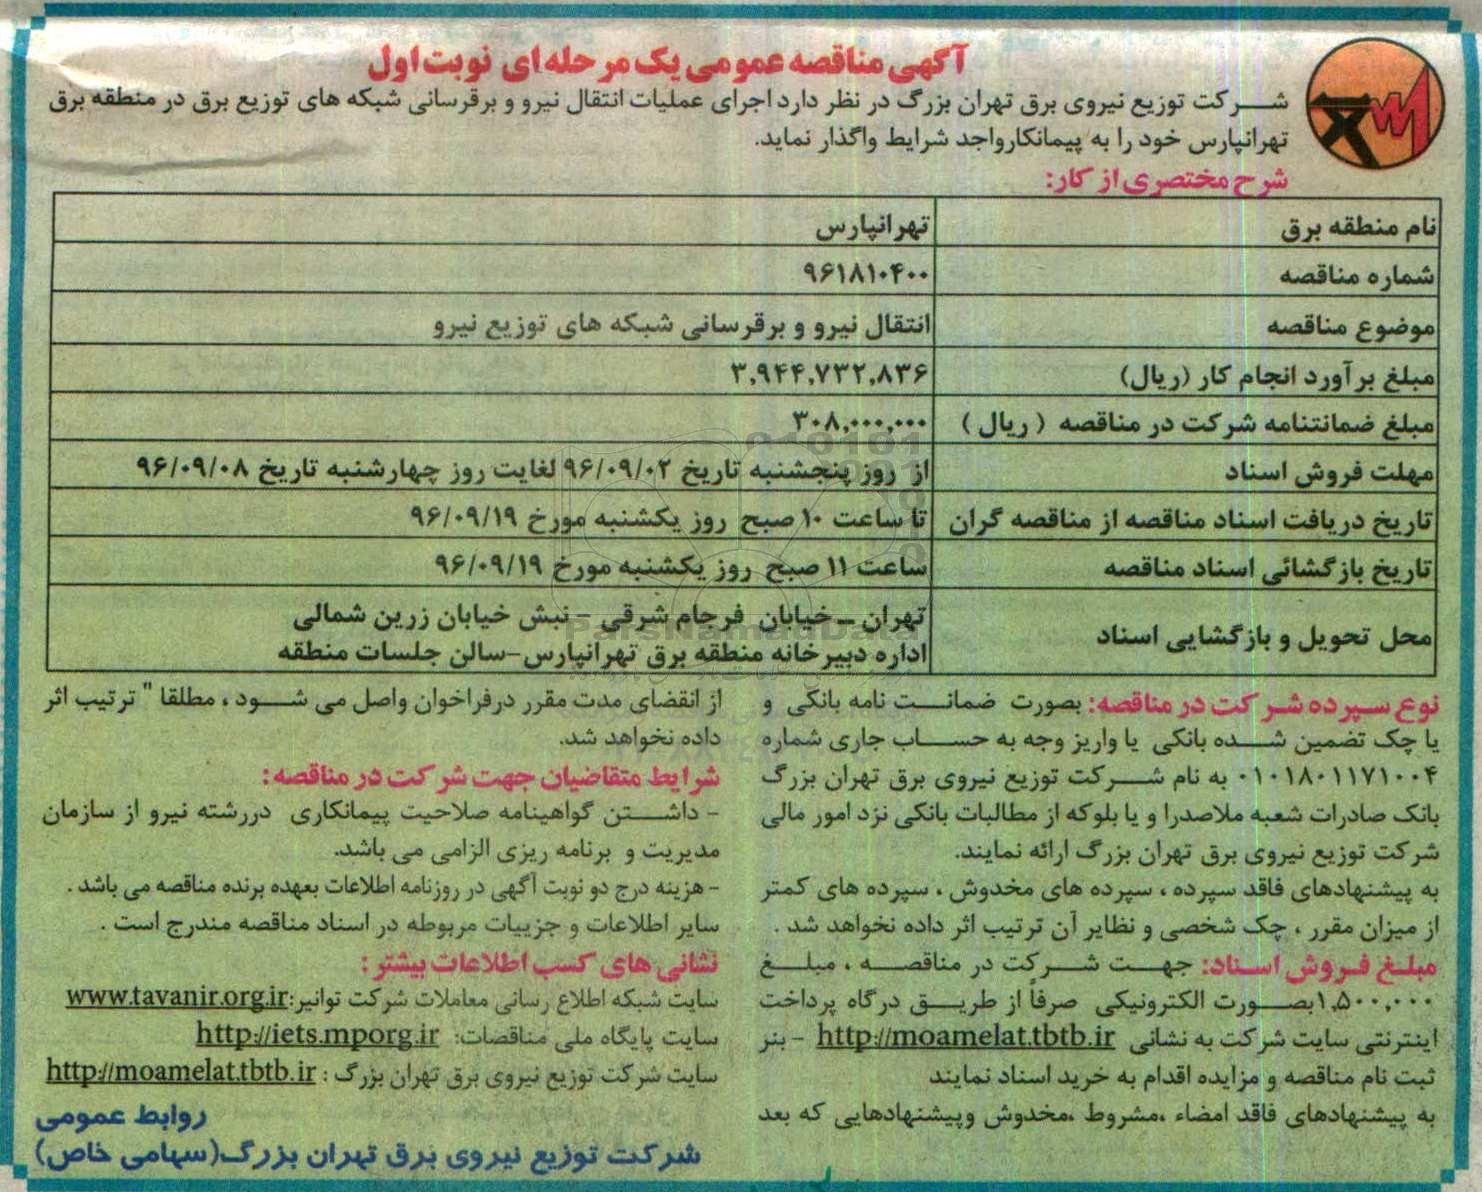 آگهی مناقصه عمومی یک مرحله ای نوبت اول
شرکت توزیع نیروی برق تهران بزرگ در نظر دارد اجرای عملیات انتقال نیرو و برقرسانی شبکه های توزیع برق در منطقه برق
تهرانپارس خود را به پیمانکارواجد شرایط واگذار نماید.
شرح مختصری از کار:
نام منطقه برق تهرانپارس
شماره مناقصه ۹۶۱۸۱۰۴۰۰
موضوع مناقصه انتقال نیرو و برقرسانی شبکه های توزیع نیرو
مبلغ برآورد انجام کار (ریال) ۳,۹۴۴,۷۳۲,۸۳۶
مبلغ ضمانتنامه شرکت در مناقصه ( ریال ) ۳۰۸,۰۰۰,۰۰۰
مهلت فروش اسناد از روز پنجشنبه تاریخ ۹۶/۰۹/۰۲ لغایت روز چهارشنبه تاریخ ۹۶/۰۹/۰۸
تاریخ دریافت اسناد مناقصه از مناقصه گران تا ساعت ۱۰ صبح روز یکشنبه مورخ ۹۶/۰۹/۱۹
تاریخ بازگشائی اسناد مناقصه ساعت ۱۱ صبح روز یکشنبه مورخ ۹۶/۰۹/۱۹
محل تحویل و بازگشایی اسناد تهران – خیابان فرجام شرقی – نبش خیابان زرین شمالی
اداره دبیرخانه منطقه برق تهرانپارس-سالن جلسات منطقه
نوع سپرده شرکت در مناقصه: بصورت ضمانت نامه بانکی و
یا چک تضمین شده بانکی یا واریز وجه به حساب جاری شماره
۰۱۰۱۸۰۱۱۷۱۰۰۴ به نام شرکت توزیع نیروی برق تهران بزرگ
بانک صادرات شعبه ملاصدرا و یا بلوکه از مطالبات بانکی نزد امور مالی
شرکت توزیع نیروی برق تهران بزرگ ارائه نمایند.
به پیشنهادهای فاقد سپرده ، سپرده های مخدوش ، سپرده های کمتر
از میزان مقرر ، چک شخصی و نظایر آن ترتیب اثر داده نخواهد شد .
مبلغ فروش اسناد: جهت شرکت در مناقصه ، مبلغ
۱,۵۰۰,۰۰۰بصورت الکترونیکی صرفاً از طریق درگاه پرداخت
اینترنتی سایت شرکت به نشانی http://moamelat.tbtb.ir - بنر
ثبت نام مناقصه و مزایده اقدام به خرید اسناد نمایند
به پیشنهادهای فاقد امضاء ،مشروط ،مخدوش وپیشنهادهایی که بعد
از انقضای مدت مقرر درفراخوان واصل می شود ، مطلقا " ترتیب اثر
داده نخواهد شد.
شرایط متقاضیان جهت شرکت در مناقصه:
- داشتن گواهینامه صلاحیت پیمانکاری دررشته نیرو از سازمان
مدیریت و برنامه ریزی الزامی می باشد.
- هزینه درج دو نوبت آگهی در روزنامه اطلاعات بعهده برنده مناقصه می باشد .
سایر اطلاعات و جزییات مربوطه در اسناد مناقصه مندرج است .
نشانی های کسب اطلاعات بیشتر :
سایت شبکه اطلاع رسانی معاملات شرکت توانیر:www.tavanir.org.ir
سایت پایگاه ملی مناقصات: http://iets.mporg.ir
سایت شرکت توزیع نیروی برق تهران بزرگ : http://moamelat.tbtb.ir
روابط عمومی
شرکت توزیع نیروی برق تهران بزرگ(سهامی خاص)